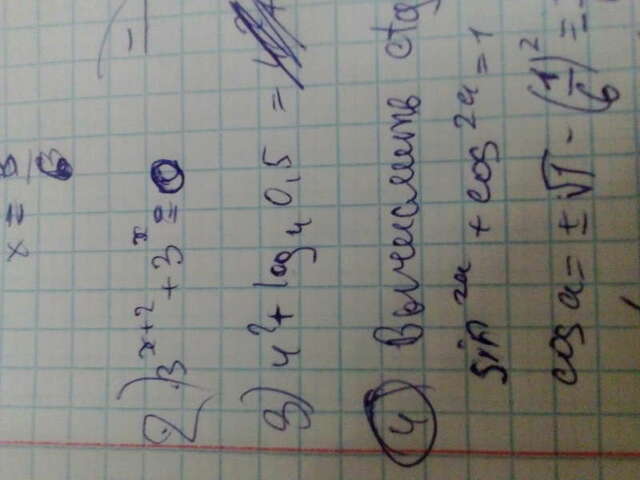 x = 5/6
2) 3^(x+2) + 3^x = 0
3) 4^2 + log_4 0,5 =
4 Вычислить ctg
sin^2a + cos^2a = 1
cos a = ± √1 - (1/6)^2 =